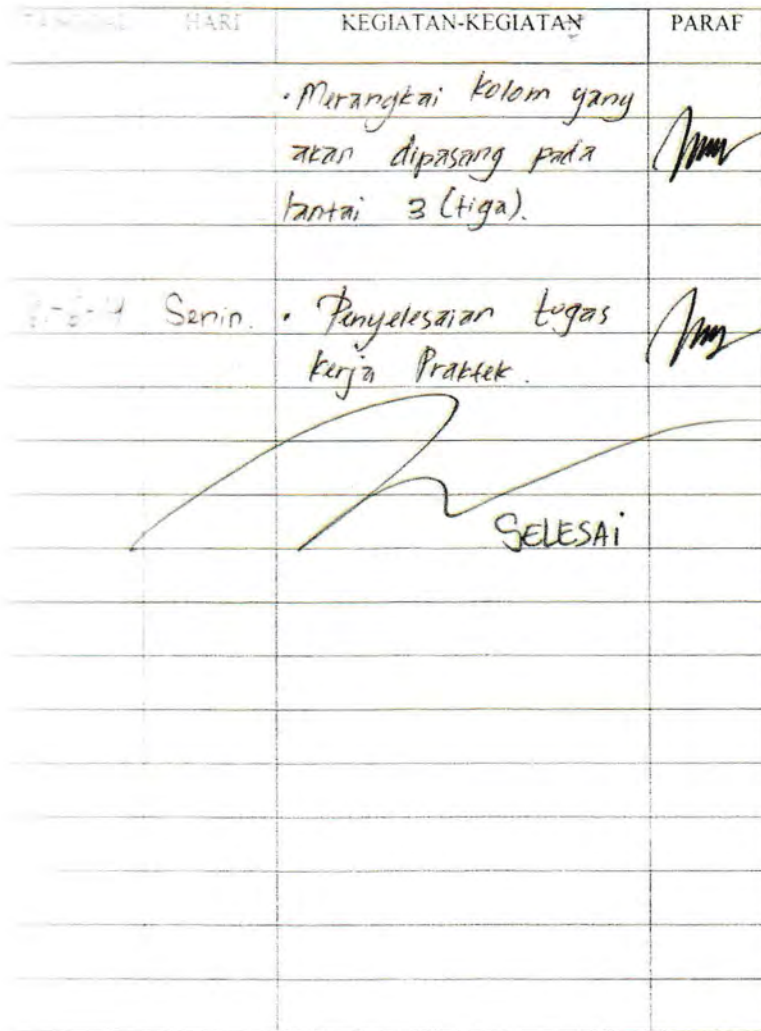 TANGGAL HARI KEGIATAN-KEGIATAN PARAF
• Merangkai kolom yang
akan dipasang pada
lantai 3 (tiga).
Senin. • Penyelesaian tugas
kerja Praktek.
SELESAi